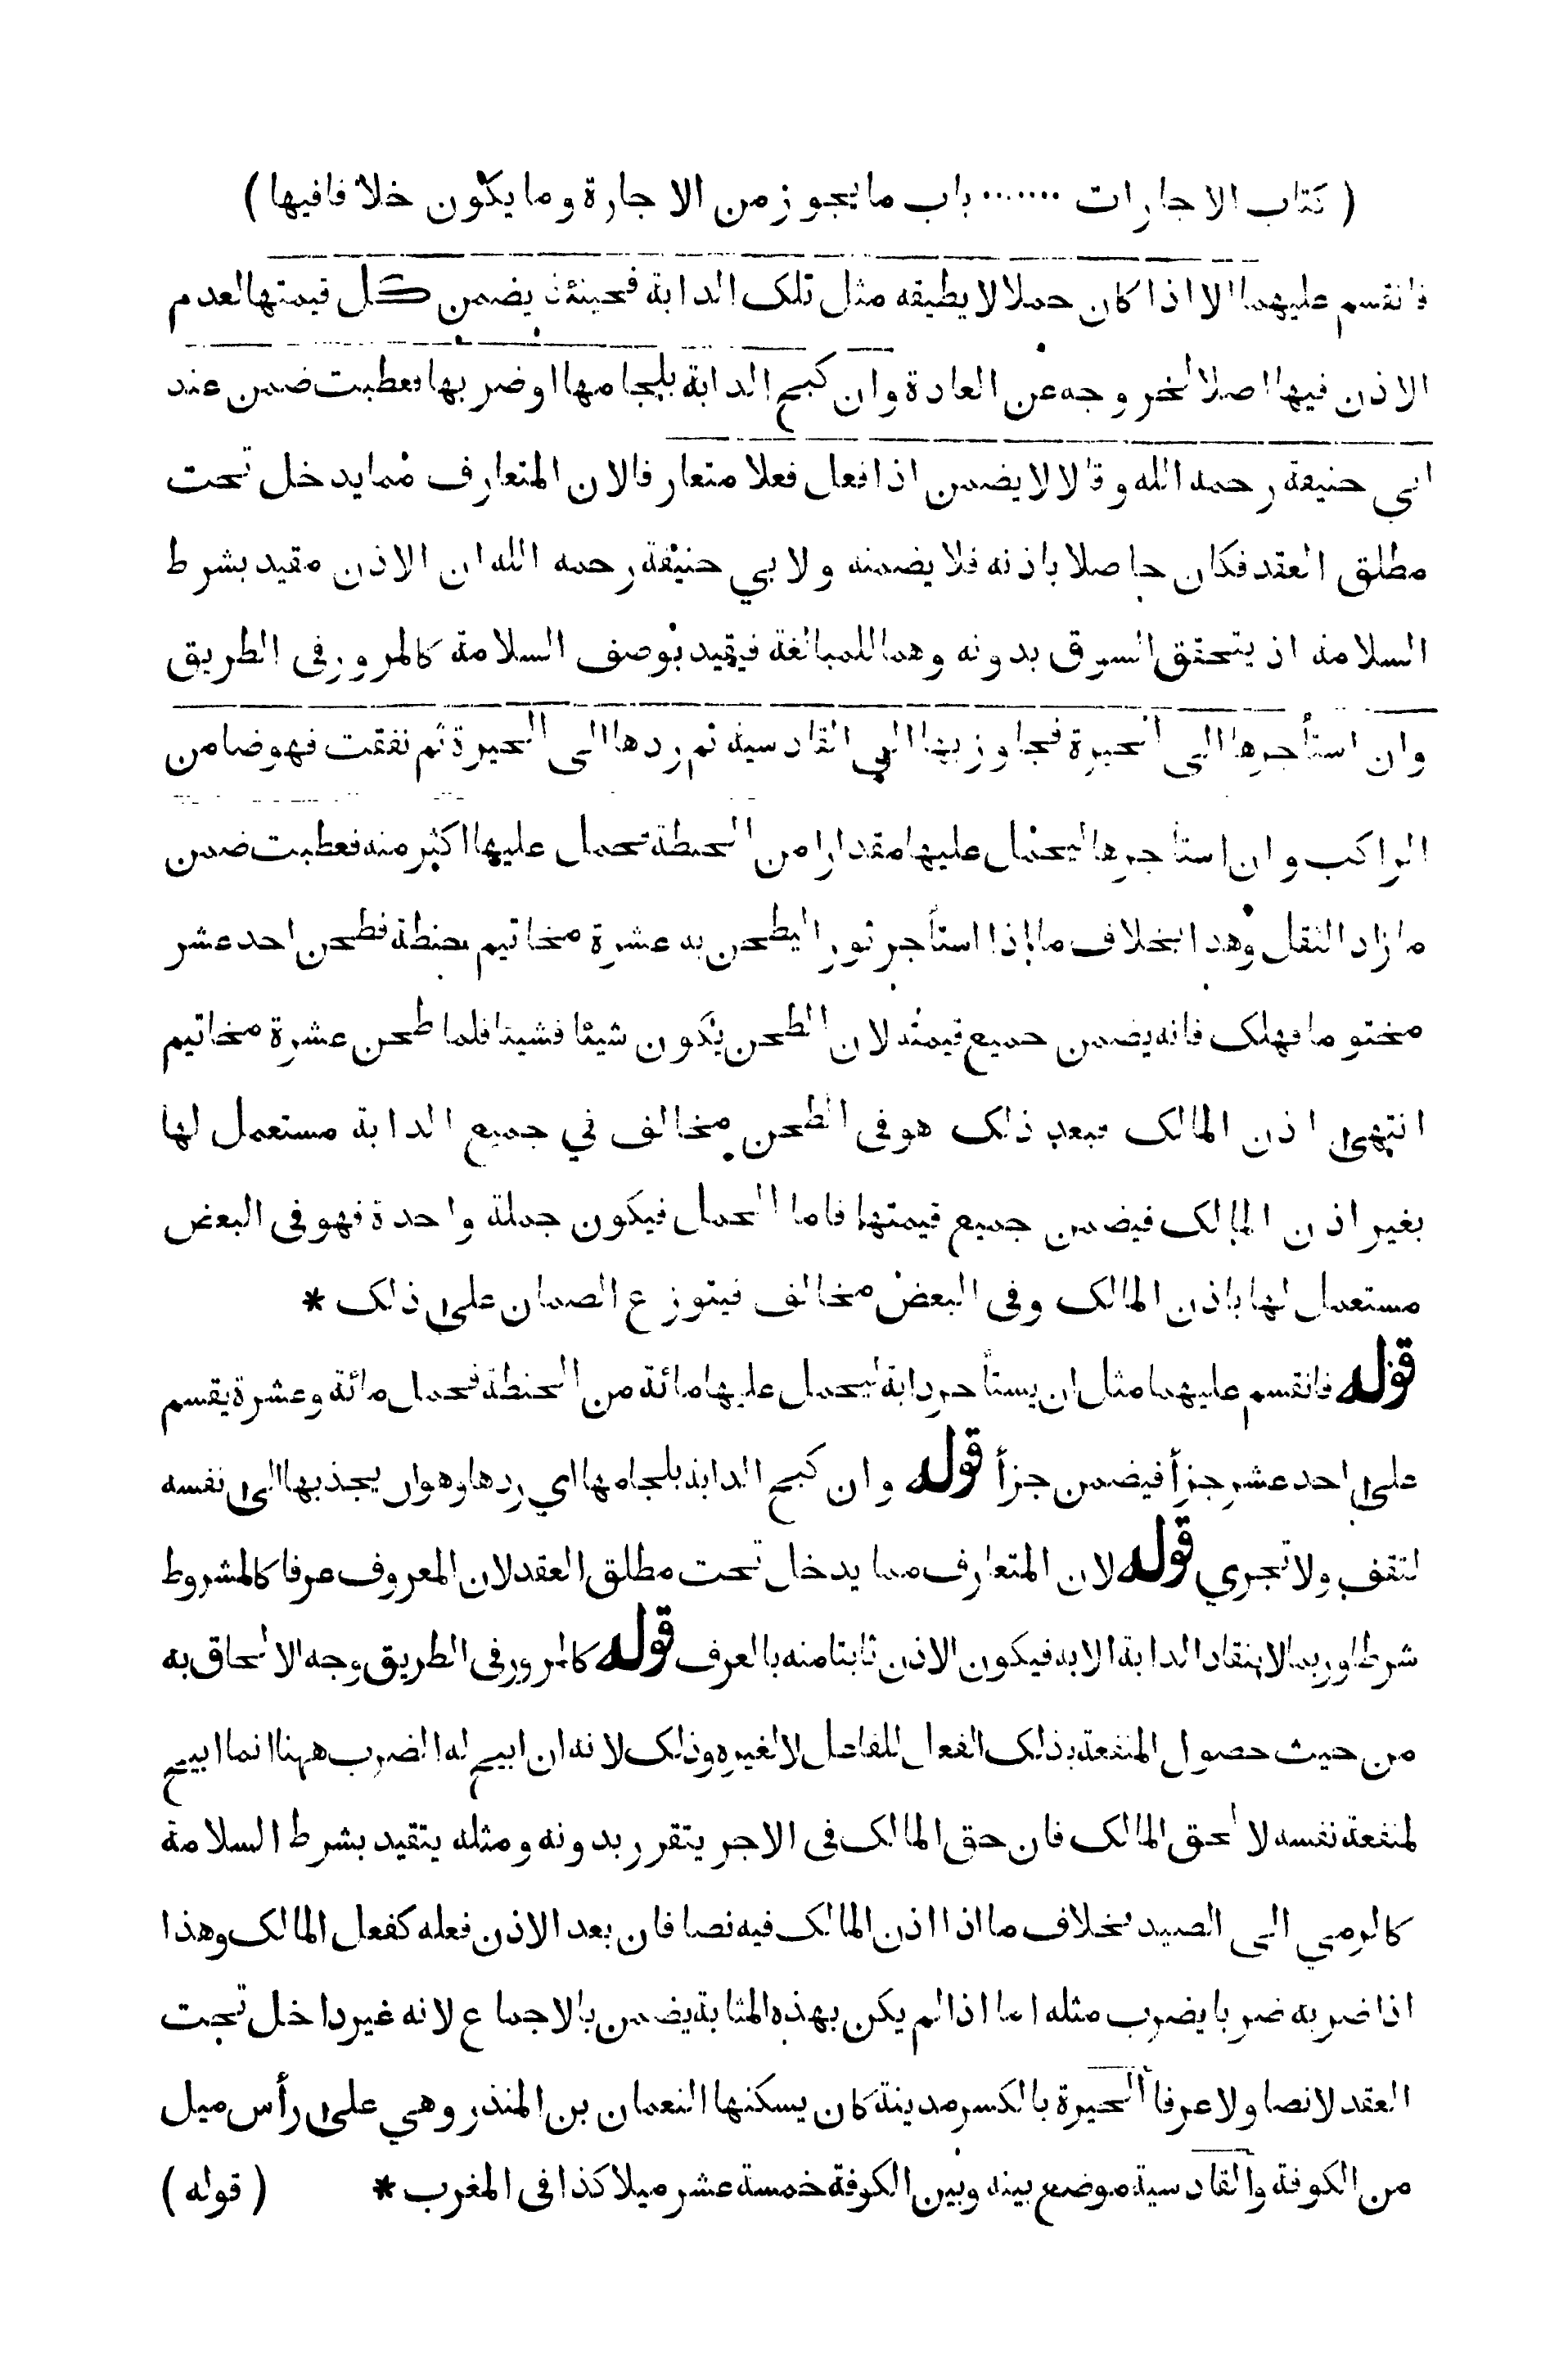 ( كتاب الاجارات ....... باب ما يجوز من الاجارة وما يكون خلافا فيها )
فانقسم عليهما الا اذا كان حملا لا يطيقه مثل تلك الدابة فحينئذ يضمن كل قيمتها لعدم
الاذن فيها اصلا لخروجه عن العادة وان كبح الدابة بلجامها او ضربها فعطبت ضمن عند
ابي حنيفة رحمه الله وقالا لا يضمن اذا فعل فعلا متعارفا لان المتعارف مما يدخل تحت
مطلق العقد فكان حاصلا باذنه فلا يضمنه ولابي حنيفة رحمه الله ان الاذن مقيد بشرط
السلامة اذ يتحقق السوق بدونه وهما للمبالغة فيقيد بوصف السلامة كالمرور في الطريق
وان استأجرها الى الحيرة فجاوز بها الى القادسية ثم ردها الى الحيرة ثم نفقت فهو ضامن
الراكب وان استأجرها ليحمل عليها مقدارا من الحنطة تحمل عليها اكثر منه فعطبت ضمن
ما زاد الثقل وهذا بخلاف ما اذا استأجر ثورا ليطحن به عشرة مخاتيم بحنطة فطحن احد عشر
مختوما فهلك فانه يضمن جميع قيمته لان الطحن يكون شيئا فشيئا فلما طحن عشرة مخاتيم
انتهى اذن المالك فبعد ذلك هو في الطحن مخالف في جميع الدابة مستعمل لها
بغير اذن المالك فيضمن جميع قيمتها فاما الحمل فيكون جملة واحدة فهو في البعض
مستعمل لها باذن المالك وفي البعض مخالف فيتوزع الضمان على ذلك *
قوله فانقسم عليهما مثل ان يستأجر دابة ليحمل عليها مائة من الحنطة فحمل مائة وعشرة يقسم
على احد عشر جزأ فيضمن جزأ قوله وان كبح الدابة بلجامها اي ردها وهو ان يجذبها الى نفسه
لتقف ولا تجري قوله لان المتعارف مما يدخل تحت مطلق العقد لان المعروف عرفا كالمشروط
شرطا وربما لا ينقاد الدابة الا به فيكون الاذن ثابتا منه بالعرف قوله كالمرور في الطريق وجه الالحاق به
من حيث حصول المنفعة بذلك الفعل للفاعل لا لغيره وذلك لانه ان ابيح له الضرب ههنا انما ابيح
لمنفعة نفسه لا لحق المالك فان حق المالك في الاجر يتقرر بدونه ومثله يتقيد بشرط السلامة
كالرمي الى الصيد بخلاف ما اذا اذن المالك فيه نصا فان بعد الاذن فعله كفعل المالك وهذا
اذا ضربه ضربا يضرب مثله اما اذا لم يكن بهذه المثابة يضمن بالاجماع لانه غير داخل تحت
العقد لا نصا ولا عرفا الحيرة بالكسر مدينة كان يسكنها النعمان بن المنذر وهي على رأس ميل
من الكوفة والقادسية موضع بينه وبين الكوفة خمسة عشر ميلا كذا في المغرب * ( قوله )